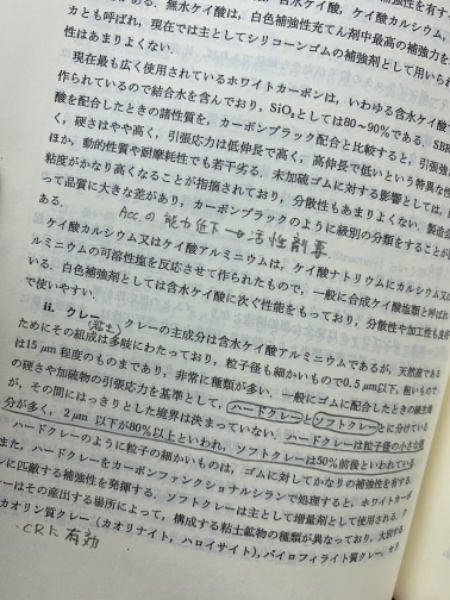 ある.無水ケイ酸は,白色補強性充てん剤中最高の補強力を
カとも呼ばれ,現在では主としてシリコーンゴムの補強剤として用いられ
性はあまりよくない.
現在最も広く使用されているホワイトカーボンは,いわゆる含水ケイ酸
作られているので結合水を含んでおり,SiO₂としては80~90%である.SBR
酸を配合したときの諸性質を,カーボンブラック配合と比較すると,引張強
く,硬さはやや高く,引張応力は低伸長で高く,高伸長で低いという特異な性
ほか,動的性質や耐摩耗性でも若干劣る.未加硫ゴムに対する影響としては,
粘度がかなり高くなることが指摘されており,分散性もあまりよくない.製造
って品質に大きな差があり,カーボンブラックのように級別の分類をすることが
ある.
Acc.の能力低下→活性剤要
ケイ酸カルシウム又はケイ酸アルミニウムは,ケイ酸ナトリウムにカルシウム又は
ルミニウムの可溶性塩を反応させて作られたもので,一般に合成ケイ酸塩類と呼ばれ
いる.白色補強剤としては含水ケイ酸に次ぐ性能をもっており,分散性や加工性も良好
で使いやすい.
ii. クレー クレーの主成分は含水ケイ酸アルミニウムであるが,天然産である
ためにその組成は多岐にわたっており,粒子径も細かいもので0.5μm以下,粗いもので
は15μm程度のものまであり,非常に種類が多い.一般にゴムに配合したときの練生地
の硬さや加硫物の引張応力を基準として,ハードクレーとソフトクレーとに分けている
が,その間にはっきりとした境界は決まっていない.ハードクレーは粒子径の小さな部
分が多く,2μm以下が80%以上といわれ,ソフトクレーは50%前後といわれている.
ハードクレーのように粒子の細かいものは,ゴムに対してかなりの補強性を有する.
また,ハードクレーをカーボンファンクショナルシランで処理すると,ホワイトカーボ
ンに匹敵する補強性を発揮する.ソフトクレーは主として増量剤として使用される.ク
レーはその産出する場所によって,構成する粘土鉱物の種類が異なっており,大別する
カオリン質クレー(カオリナイト,ハロイサイト),パイロフィライト質クレー,セリ
CRに有効